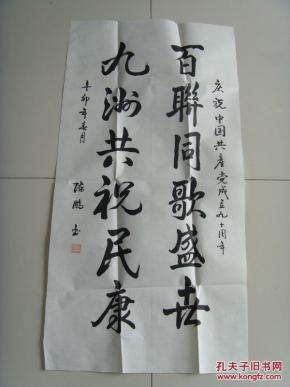 庆祝中国共产党成立九十周年
百聯同歌盛世
九洲共祝民康
辛卯年春月
陈鹏书
孔夫子旧书网